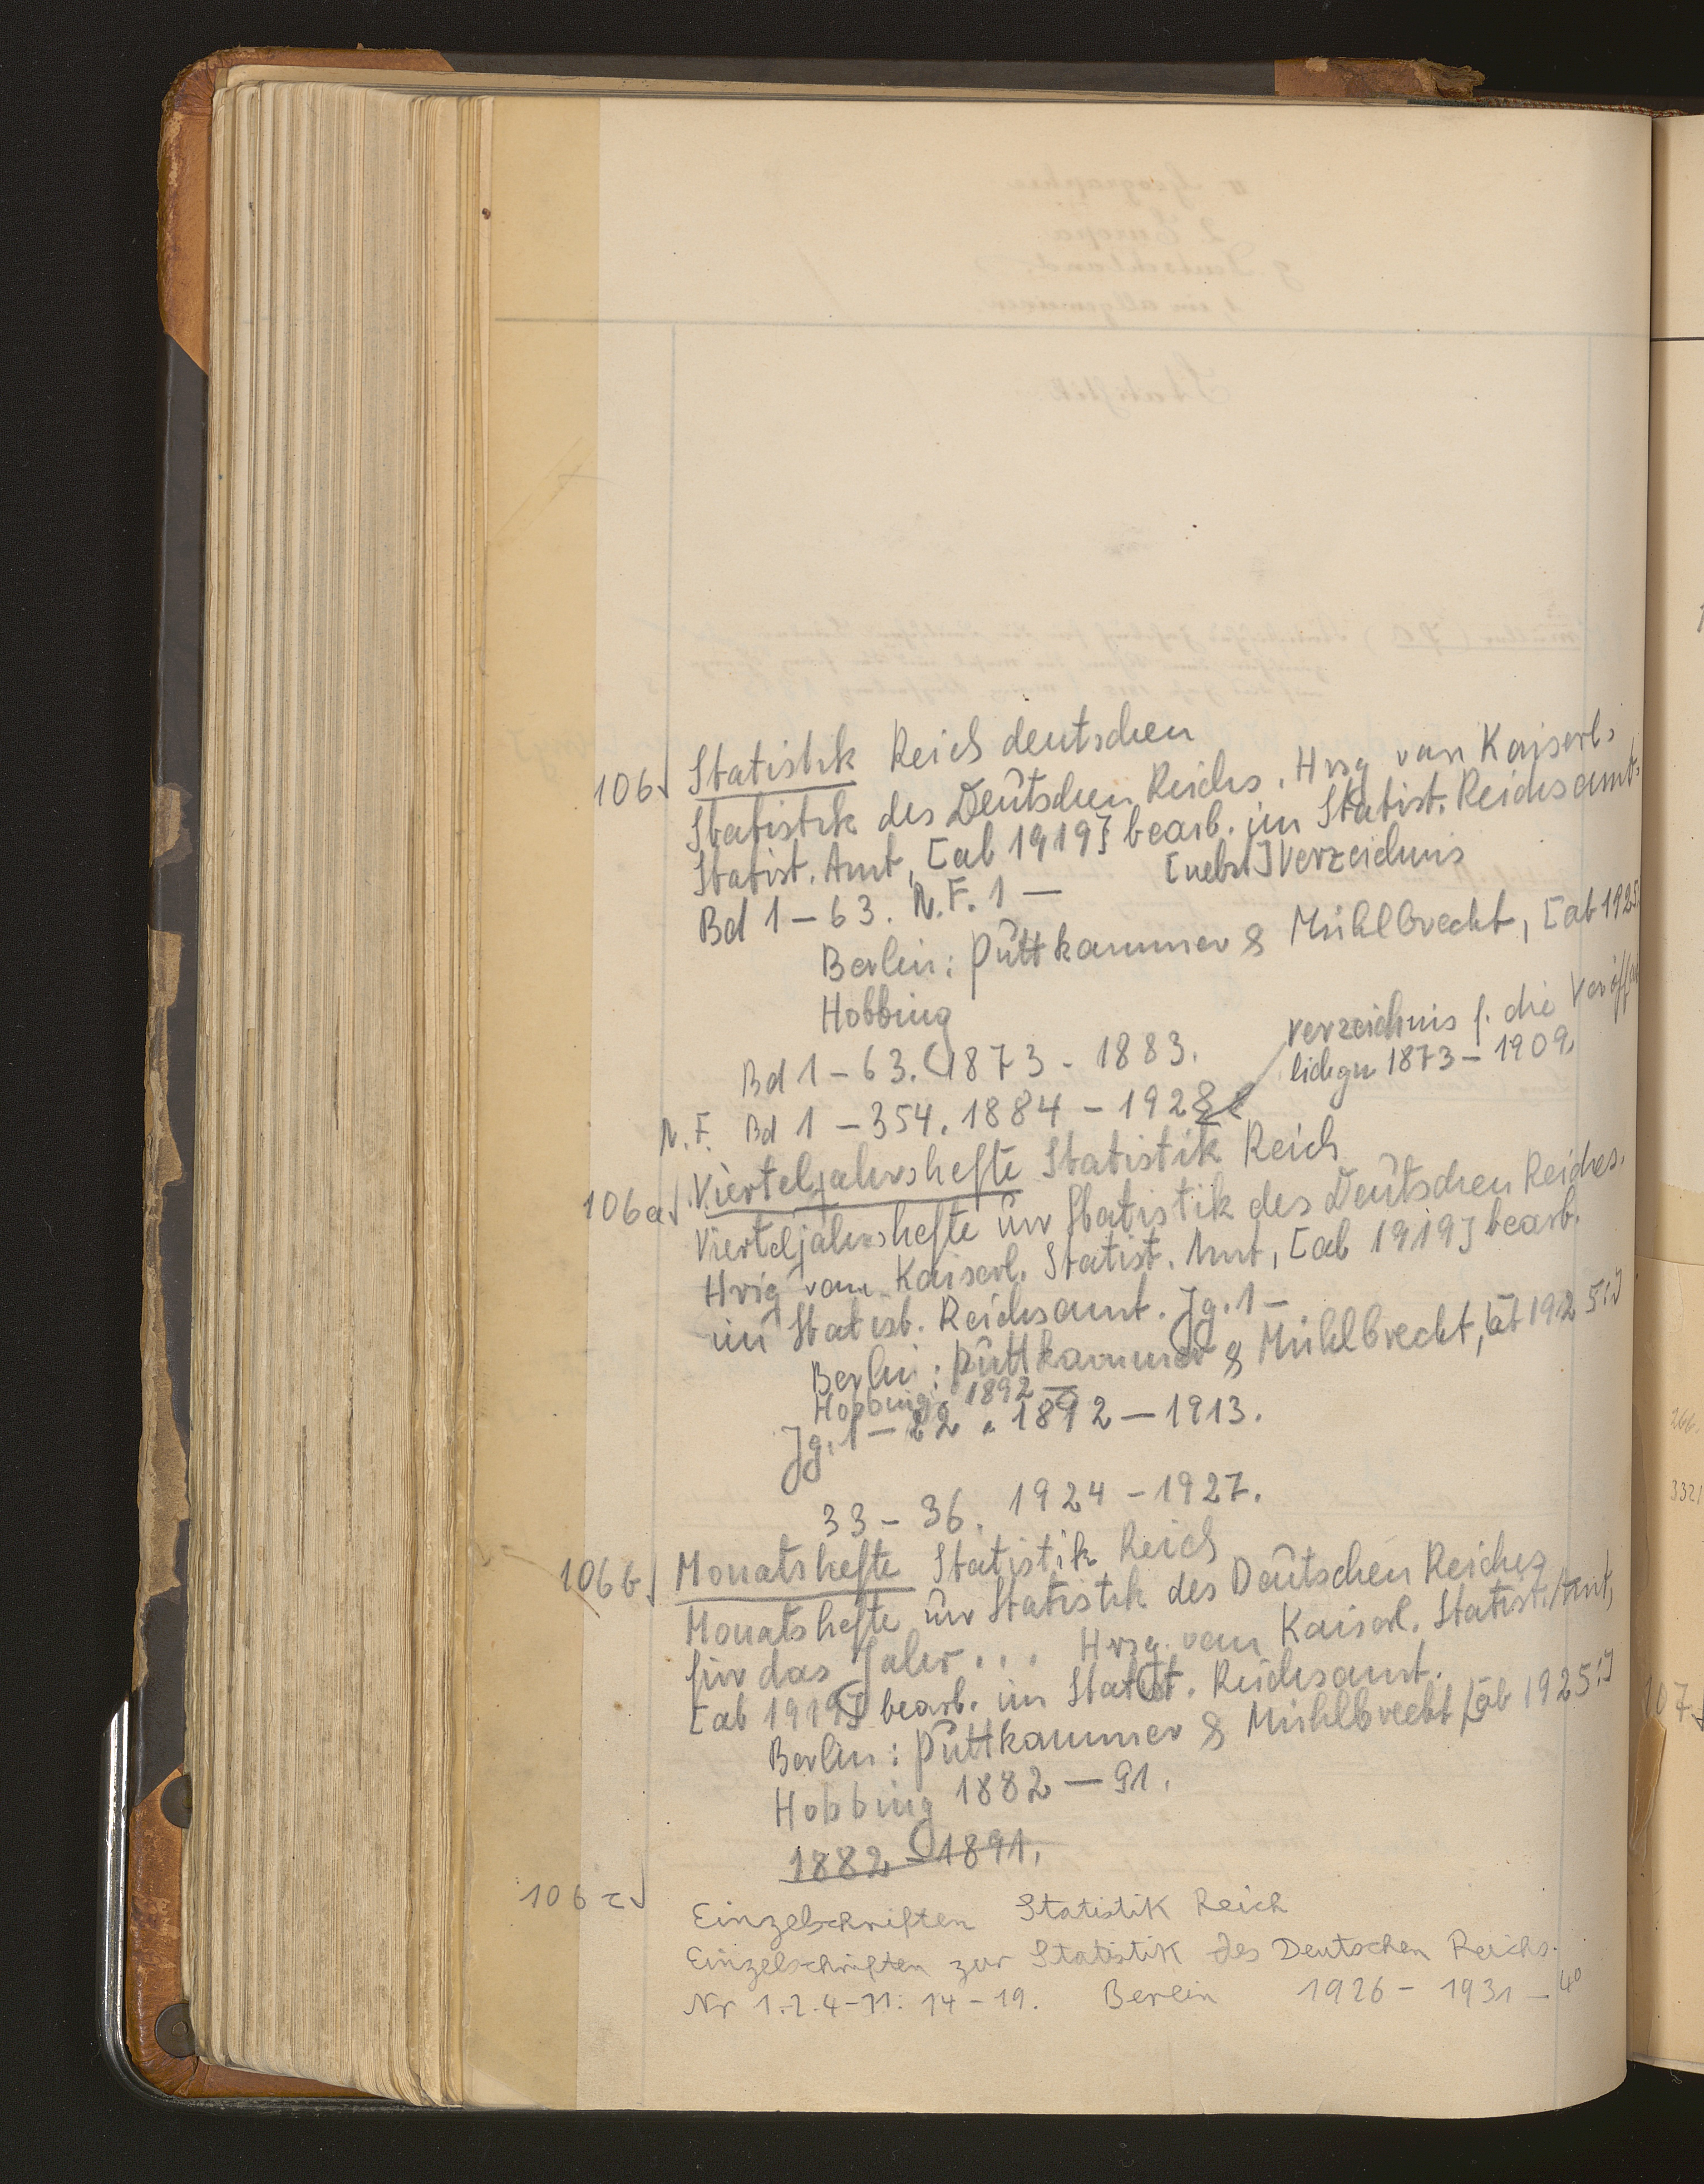 106 Statistik Reich deutschen
Statistik des Deutschen Reichs. Hrsg vom Kaiserl.
Statist. Amt, [ab 1919] bearb. im Statist. Reichsamt.
Bd 1–63. N.F. 1– [nebst] Verzeichnis
Berlin: Puttkammer & Mühlbrecht, [ab 1925:
Hobbing
Bd 1–63. 1873–1883.
N.F. Bd 1–354. 1884–1928
Verzeichnis f. die Veröff
lichgn 1873–1909.
106a Vierteljahrshefte Statistik Reich
Vierteljahrshefte zur Statistik des Deutschen Reiches.
Hrsg vom Kaiserl. Statist. Amt, [ab 1919] bearb.
im Statist. Reichsamt. Jg. 1–
Berlin: Puttkammer & Mühlbrecht, [ab 1925:]
Hobbing 1892–
Jg. 1–22. 1892–1913.
33–36. 1924–1927.
106b Monatshefte Statistik Reich
Monatshefte zur Statistik des Deutschen Reiches
für das Jahr ... Hrsg. vom Kaiserl. Statist. Amt,
[ab 1919] bearb. im Statist. Reichsamt.
Berlin: Puttkammer & Mühlbrecht, [ab 1925:]
Hobbing 1882–91.
1882–1891.
106c Einzelschriften Statistik Reich
Einzelschriften zur Statistik des Deutschen Reichs.
Nr 1.2.4–11: 14–19. Berlin 1926–1931– 4°
107